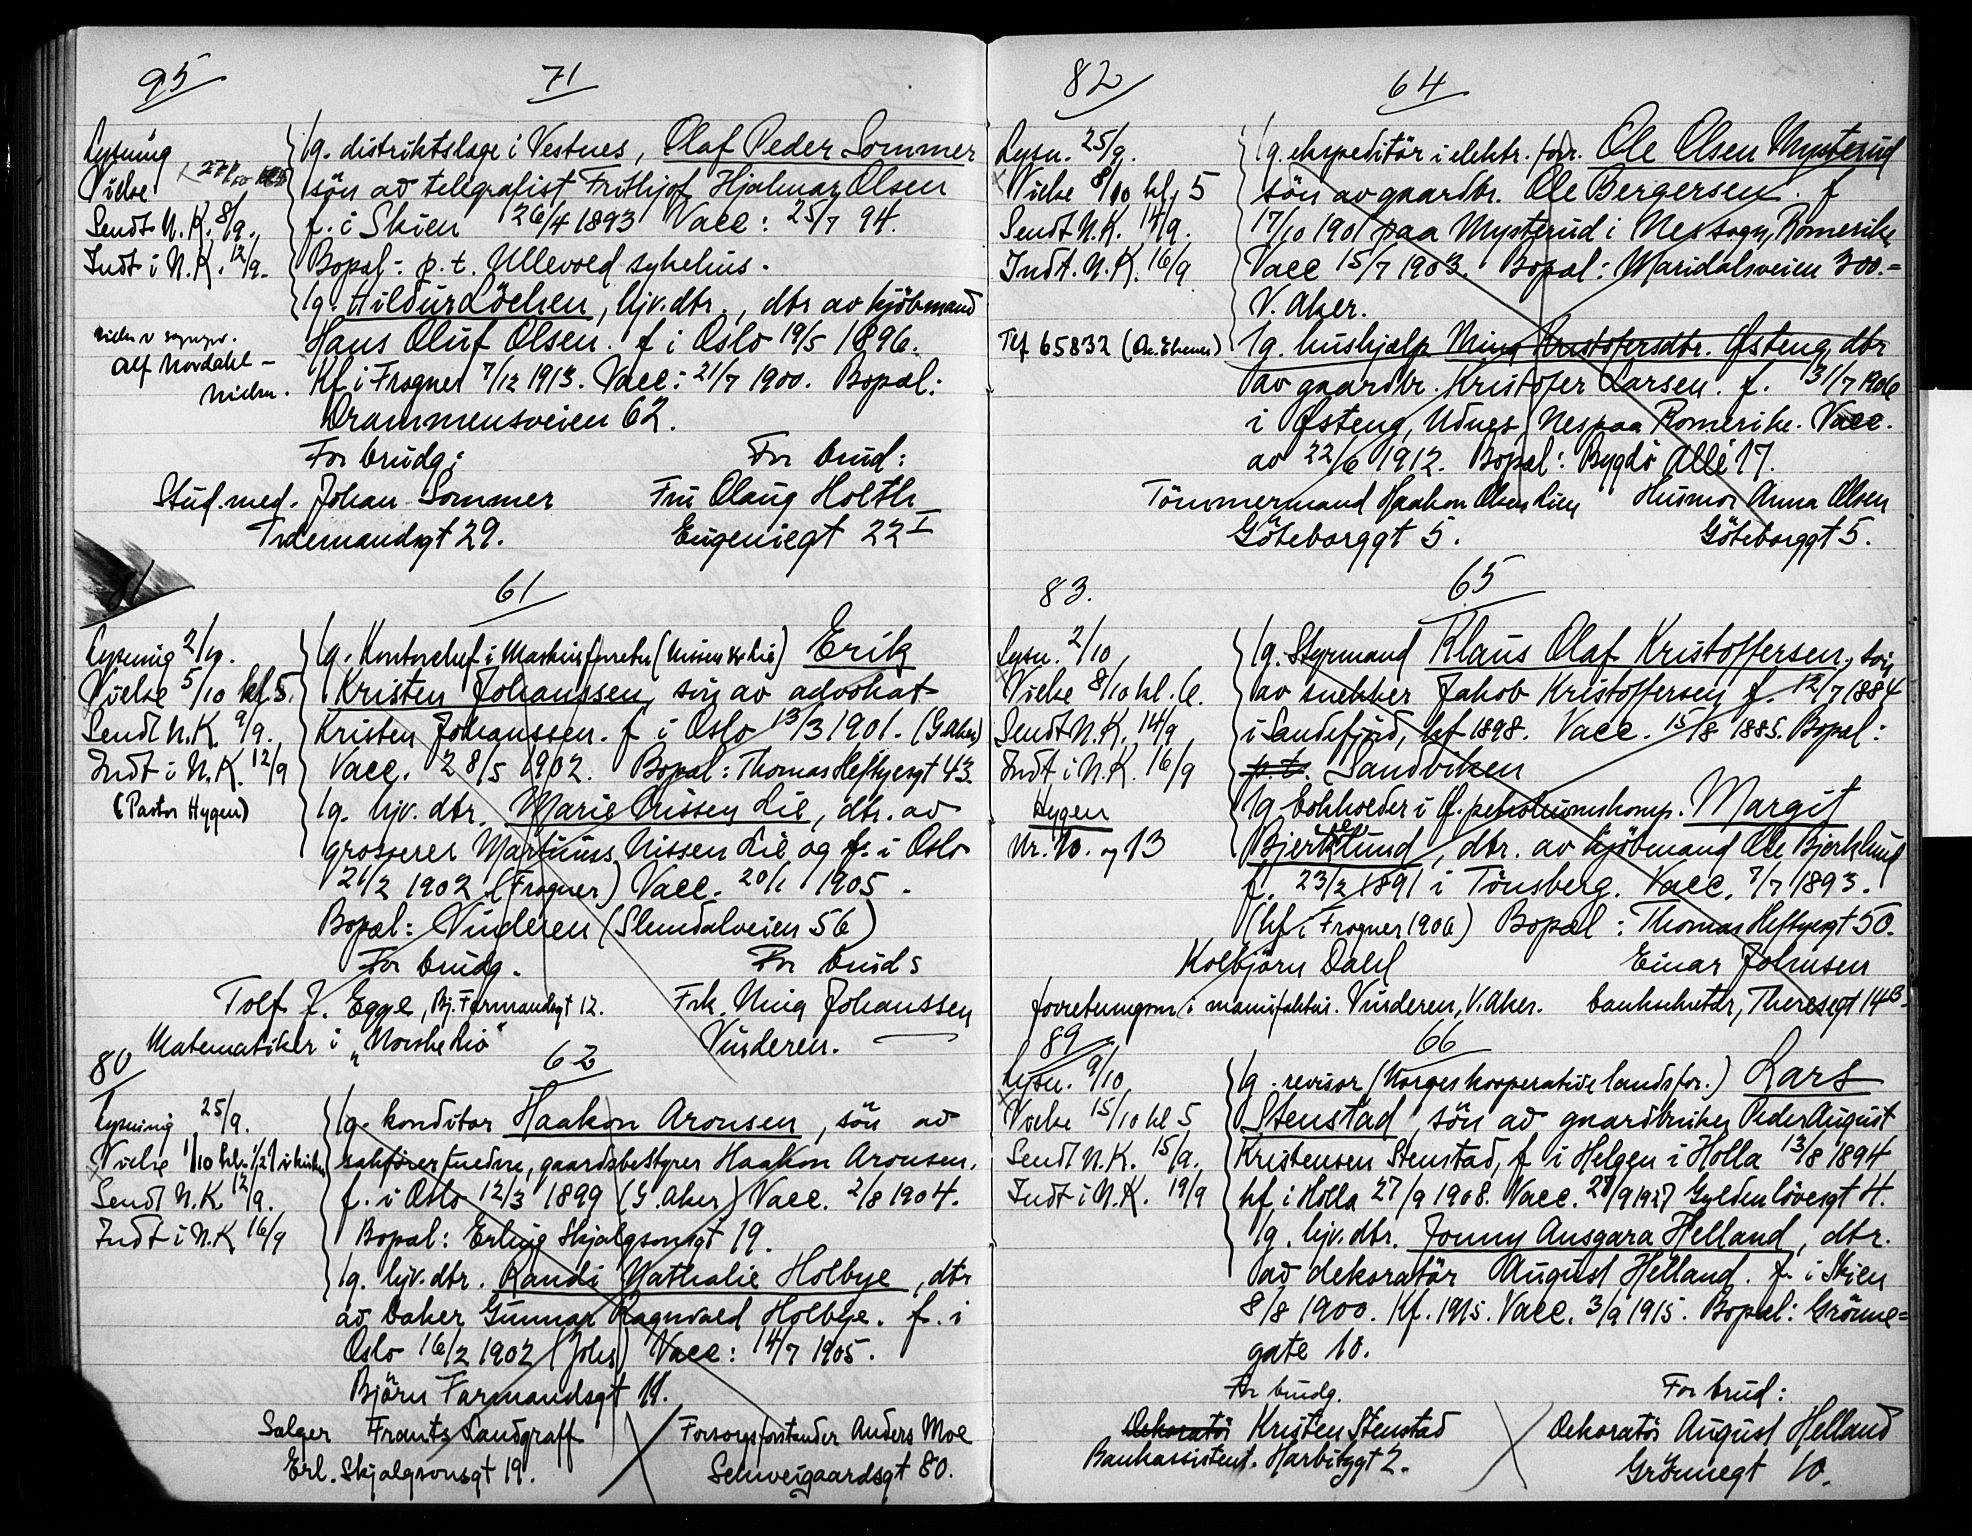 95 71
Lysning
Vielse 27/10
Sendt N.K. 8/9.
Indt i N.K. 12/9.
Ug. distriktslæge i Vestnes, Olaf Peder Sommer
sön av telegrafist Frithjof Hjalmar Olsen
f. i Skien 26/4 1893 Vacc: 25/7 94.
Bopæl: p.t. Ullevold sykehus.
Ug. Hildur Löchen, hjv. dtr., dtr av kjöbmand
Hans Oluf Olsen. f i Oslo 19/5 1896.
Kf. i Frogner 7/12 1913. Vacc: 21/7 1900. Bopæl:
Drammensveien 62.
Alf Nordahl-
For brudg: For brud:
Stud. med. Johan Sommer Fru Olaug Holth
Tidemandsgt 29. Eugeniegt 22 I
61
Lysning 2/10.
Vielse 5/10 kl 5.
Sendt N.K. 9/9.
Indt i N.K. 12/9
(Pastor Hygen)
Ug. Kontorchef i Maskinforretn (Nissen Lie) Erik
Kristen Johanssen, sön av advokat
Kristen Johanssen. f i Oslo 13/3 1901. (G. Aker)
Vacc. 28/5 1902. Bopæl: Thomas Heftyesgt 43.
Ug. hjv. dtr. Marie Nissen Lie, dtr. av
grosserer Martinus Nissen Lie og f. i Oslo
21/2 1902 (Frogner) Vacc. 20/1 1905.
Bopæl: Vinderen (Slemdalveien 56)
For brudg. For bruds
Tolf J. Egge, Bj. Farmandsgt 12. Frk. Nina Johanssen
Matematiker i "Norske Liv" Vinderen.
80 62
Lysning 25/9.
Vielse 1/10 kl. 1/2 7 i kirken
Sendt N.K. 12/9.
Indt i N.K 16/9
Ug. konditor Haakon Aronsen, sön av
gaardsbestyrer Haakon Aronsen.
f. i Oslo 12/3 1899 (G. Aker) Vacc. 2/8 1904.
Bopæl: Erling Skjalgsonsgt 19.
Ug. hjv. dtr. Randi Nathalie Holbye, dtr
av baker Gunnar Ragnvald Holbye. f. i
Oslo 16/2 1902 (Johs) Vacc: 14/7 1905.
Björn Farmandsgt 11.
Selger Frantz Landgraff Forsorgsforstander Anders Moe
Erl. Skjalgsonsgt 19. Schweigaardsgt 80.
82 64
Lysn. 25/9.
Vielse 8/10 kl. 5
Sendt N.K. 14/9.
Indt. N.K. 16/9
Tlf 65832
Ug. ekspeditör i elektr. forr. Ole Olsen Mysterud
sön av gaardbr. Ole Bergersen. f
17/10 1901 paa Mysterud i Nes sogn, Romerike
Vacc 15/7 1903. Bopæl: Maridalsveien 300.
V. Aker.
Ug. hushjælp Mina Kristofersdtr. Østeng, dtr
av gaardbr. Kristofer Larsen. f. 31/7 1906
i Østeng, Udnes, Nes paa Romerike. Vacc.
av 22/6 1912. Bopæl: Bygdö Allé 17.
Tömmermand Haakon Olsen Husmor Anna Olsen
Göteborggt 5. Göteborggt 5.
83. 65
Lysn. 2/10.
Vielse 8/10 kl. 6.
Sendt N.K. 14/9
Indt i N.K. 16/9
Hygen
Nr. 10. og 13
Ug. Styrmand Klaus Olaf Kristoffersen, sön
av snekker Jakob Kristoffersen f. 12/7 1884
i Sandefjord, kf 1898. Vacc. 15/8 1885. Bopæl:
p.t. Sandviken
Ug bokholder i petroleumskomp. Margit
Bjerklund, dtr. av kjöbmand Ole Bjerklund
f. 23/2 1891 i Tönsberg. Vacc. 7/7 1893.
(kf i Frogner 1906) Bopæl: Thomas Heftyesgt 50.
Kolbjörn Dahl Einar Johnsen
forretningsm i manufaktur. Vinderen, V. Aker. banksekretær, Theresegt 14B.
89 66
Lysn. 9/10.
Vielse 15/10 kl 5
Sendt N.K. 15/9.
Indt i N.K. 19/9
Ug. revisor (Norges kooperative landsfor.) Lars
Stenstad sön av gaardbruker Peder August
Kristensen Stenstad, f i Helgen i Holla 13/8 1894
kf i Holla 27/9 1908. Vacc. 27/9 1927 Gyldenlövesgt 4.
Ug. hjv. dtr. Jonny Ansgara Helland, dtr.
av dekoratör August Helland. f. i Skien
8/8 1900. Kf. 1915. Vacc. 3/9 1915. Bopæl: Grönne-
gate 10.
For brudg. For brud:
Dekoratör Kristen Stenstad Dekoratör August Helland
Bankassistent. Harbitzgt 2. Grönnegt 10.